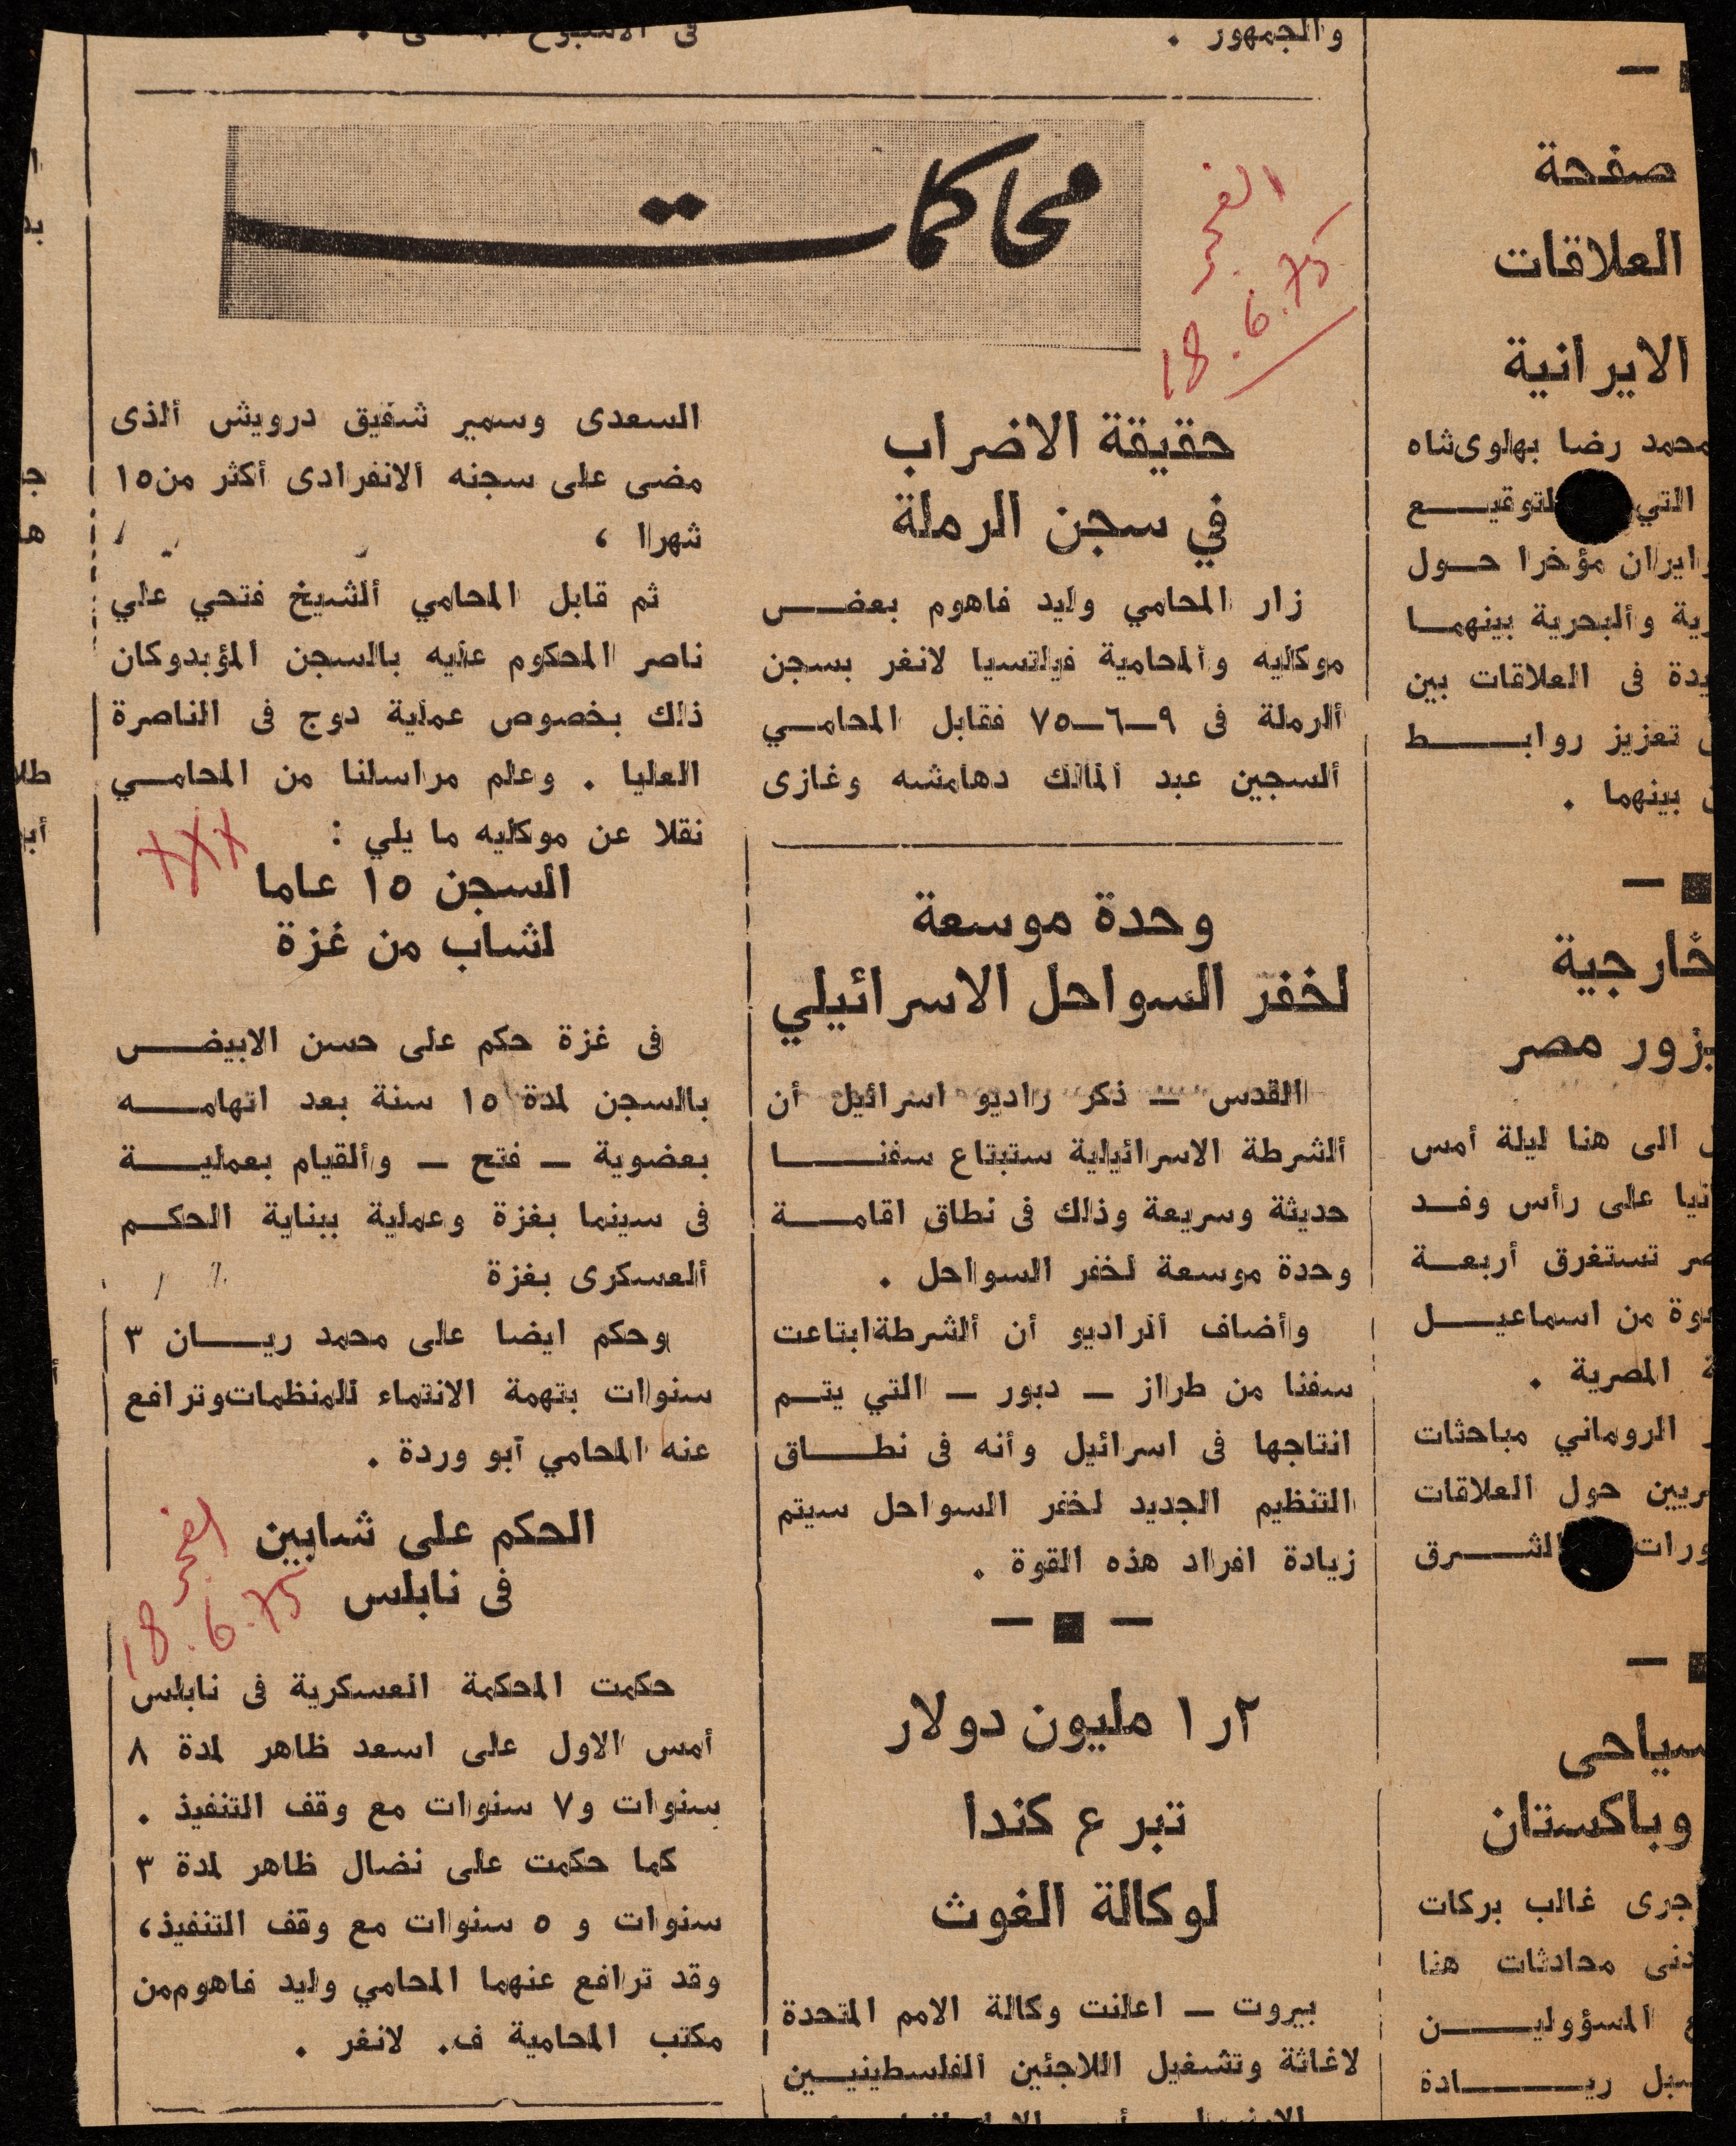 والجمهور .
محاكمات
الفجر
18.6.75
حقيقة الاضراب
في سجن الرملة
زار المحامي وليد فاهوم بعض
موكليه وألمحامية فيلتسيا لانغر بسجن
ألرملة فى ٩-٦-٧٥ فقابل المحامي
ألسجين عبد المالك دهامشه وغازى
السعدى وسمير شفيق درويش ألذى
مضى على سجنه الانفرادى أكثر من ١٥
شهرا ،
ثم قابل المحامي ألشيخ فتحي علي
ناصر المحكوم عليه بالسجن المؤبدوكان
ذلك بخصوص عملية دوج فى الناصرة
العليا . وعلم مراسلنا من المحامي
نقلا عن موكليه ما يلي :
xxx
السجن ١٥ عاما
لشاب من غزة
فى غزة حكم على حسن الابيض
بالسجن لمدة ١٥ سنة بعد اتهامه
بعضوية – فتح – وألقيام بعملية
فى سينما بغزة وعملية ببناية الحكم
ألعسكرى بغزة
وحكم ايضا على محمد ريان ٣
سنوات بتهمة الانتماء للمنظمات وترافع
عنه المحامي أبو وردة .
الحكم على شابين
فى نابلس
الفجر
18.6.75
حكمت المحكمة العسكرية فى نابلس
أمس الاول على اسعد ظاهر لمدة ٨
سنوات و٧ سنوات مع وقف التنفيذ .
كما حكمت على نضال ظاهر لمدة ٣
سنوات و ٥ سنوات مع وقف التنفيذ،
وقد ترافع عنهما المحامي وليد فاهوم من
مكتب المحامية ف. لانغر .
وحدة موسعة
لخفر السواحل الاسرائيلي
القدس – ذكر راديو اسرائيل أن
ألشرطة الاسرائيلية ستبتاع سفنا
حديثة وسريعة وذلك فى نطاق اقامة
وحدة موسعة لخفر السواحل .
وأضاف الراديو أن ألشرطة ابتاعت
سفنا من طراز – دبور – التي يتم
انتاجها فى اسرائيل وأنه فى نطاق
التنظيم الجديد لخفر السواحل سيتم
زيادة افراد هذه القوة .
١٫٢ مليون دولار
تبرع كندا
لوكالة الغوث
بيروت – اعلنت وكالة الامم المتحدة
لاغاثة وتشغيل اللاجئين الفلسطينيين
صفحة
العلاقات
الايرانية
محمد رضا بهلوى شاه
التي لتوقيع
وايران مؤخرا حول
وألبحرية بينهما
فى العلاقات بين
تعزيز روابط
بينهما .
خارجية
يزور مصر
الى هنا ليلة أمس
على رأس وفد
تستغرق أربعة
من اسماعيل
المصرية .
الروماني مباحثات
حول العلاقات
الشرق
سياحى
وباكستان
جرى غالب بركات
محادثات هنا
المسؤولين
ريادة